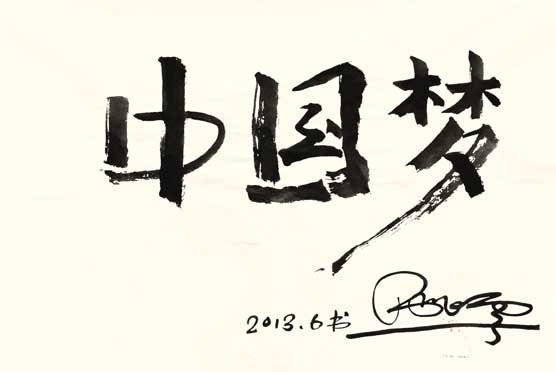 中国梦
2013.6书